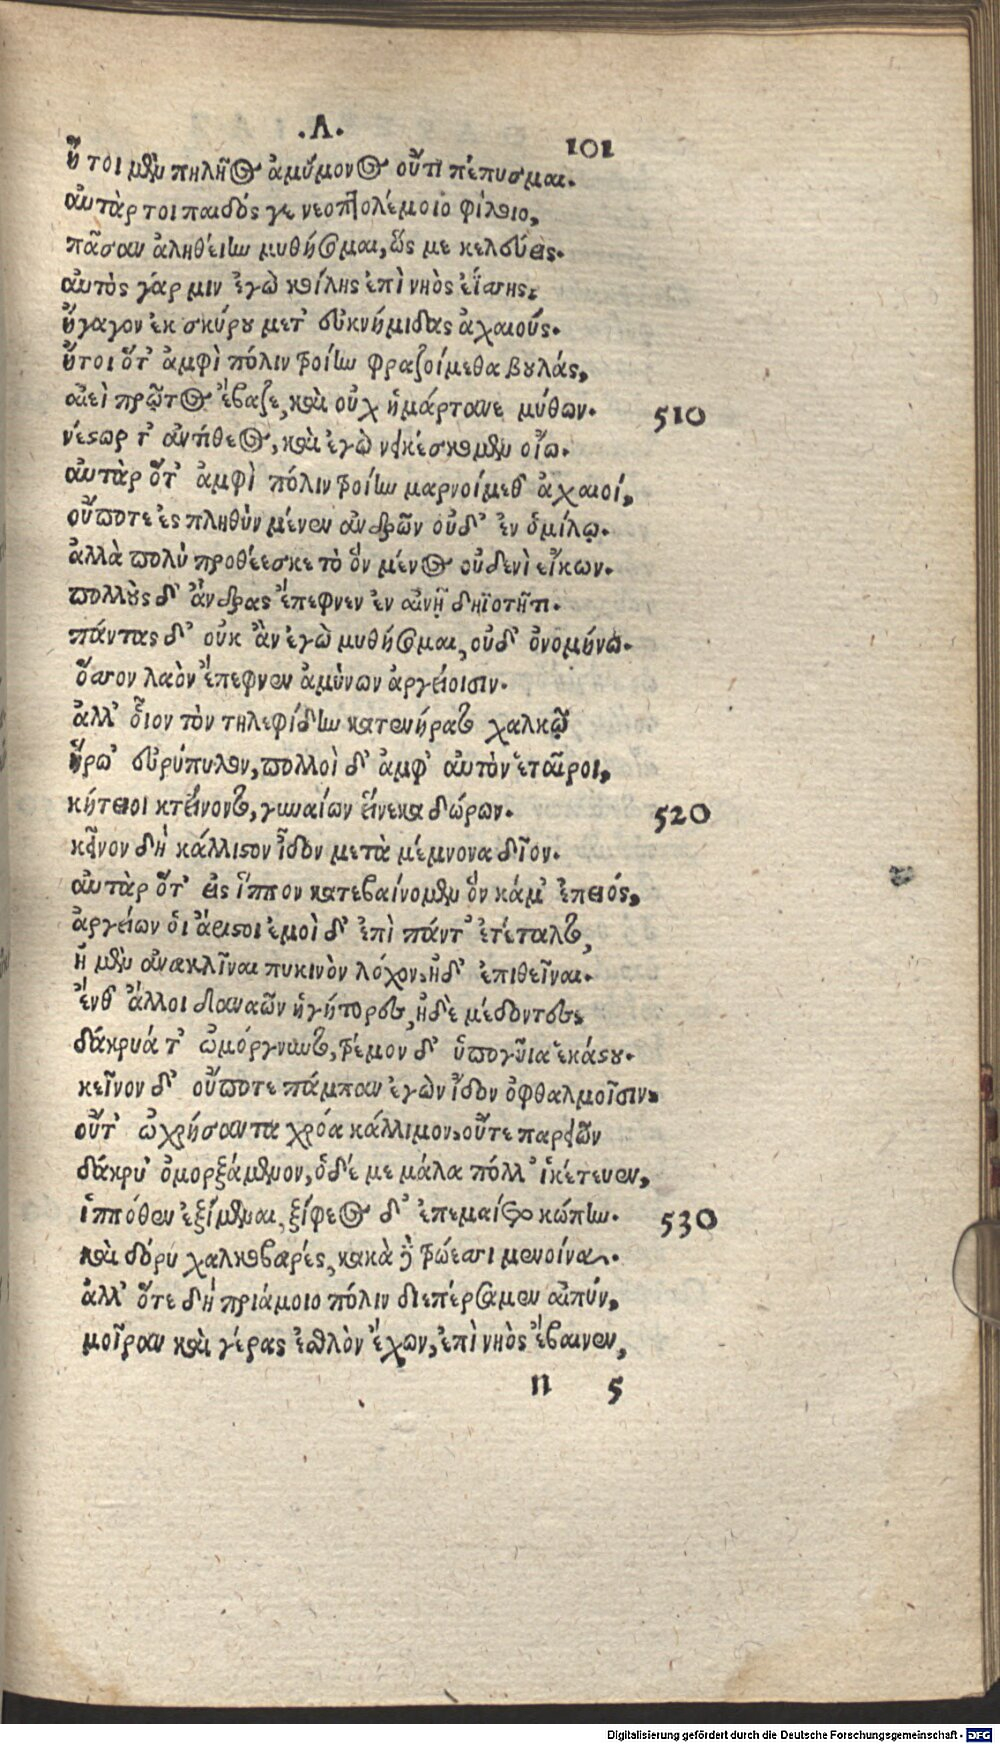 .Λ.
101
ἤτοι μὲν πηλῆος ἀμύμονος οὔτι πέπυσμαι.
αὐτάρ τοι παιδός γε νεοπτολέμοιο φίλοιο,
πᾶσαν ἀληθείην μυθήσομαι, ὥς με κελεύεις.
αὐτὸς γάρ μιν ἐγὼ κοίλης ἐπὶ νηὸς ἐΐσης,
ἤγαγον ἐκ σκύρου μετ' εὐκνήμιδας ἀχαιούς.
ἤτοι ὅτ' ἀμφὶ πόλιν τροίην φραζοίμεθα βουλάς,
αἰεὶ πρῶτος ἔβαζε, καὶ οὐχ ἡμάρτανε μύθων. 510
νέστωρ τ' ἀντίθεος, καὶ ἐγὼ νεικέσκομεν οἴω.
αὐτὰρ ὅτ' ἀμφὶ πόλιν τροίην μαρνοίμεθ' ἀχαιοί,
οὔποτε ἐς πληθὺν μένεν ἀνδρῶν οὐδ' ἐν ὁμίλῳ.
ἀλλὰ πολὺ προθέεσκε τὸ ὃν μένος οὐδενὶ εἴκων.
πολλοὺς δ' ἄνδρας ἔπεφνεν ἐν αἰνῇ δηϊοτῆτι.
πάντας δ' οὐκ ἂν ἐγὼ μυθήσομαι, οὐδ' ὀνομήνω.
ὅσσον λαὸν ἔπεφνεν ἀμύνων ἀργείοισιν.
ἀλλ' οἷον τὸν τηλεφίδην κατενήρατο χαλκῷ
ἥρω' εὐρύπυλον, πολλοὶ δ' ἀμφ' αὐτὸν ἑταῖροι,
κήτειοι κτείνοντο, γυναίων εἵνεκα δώρων. 520
κεῖνον δὴ κάλλιστον ἴδον μετὰ μέμνονα δῖον.
αὐτὰρ ὅτ' εἰς ἵππον κατεβαίνομεν ὃν κάμ' ἐπειός,
ἀργείων οἱ ἄριστοι ἐμοὶ δ' ἐπὶ πάντ' ἐτέταλτο,
ἠ μὲν ἀνακλῖναι πυκινὸν λόχον, ἠδ' ἐπιθεῖναι.
ἔνθ' ἄλλοι δαναῶν ἡγήτορες, ἠδὲ μέδοντες,
δάκρυά τ' ὠμόργνυντο, τρέμον δ' ὑπογυῖα ἑκάστου.
κεῖνον δ' οὔποτε πάμπαν ἐγὼν ἴδον ὀφθαλμοῖσιν,
οὔτ' ὠχρήσαντα χρόα κάλλιμον, οὔτε παρειῶν
δάκρυ' ὀμορξάμενον, ὁδέ με μάλα πόλλ' ἱκέτευεν,
ἱππόθεν ἐξίμεναι, ξίφεος δ' ἐπεμαίετο κώπην. 530
καὶ δόρυ χαλκοβαρές, κακὰ δὲ τρώεσσι μενοίνα.
ἀλλ' ὅτε δὴ πριάμοιο πόλιν διεπέρσαμεν αἰπήν,
μοῖραν καὶ γέρας ἐσθλὸν ἔχων, ἐπὶ νηὸς ἔβαινεν,
n 5
Digitalisierung gefördert durch die Deutsche Forschungsgemeinschaft - DFG